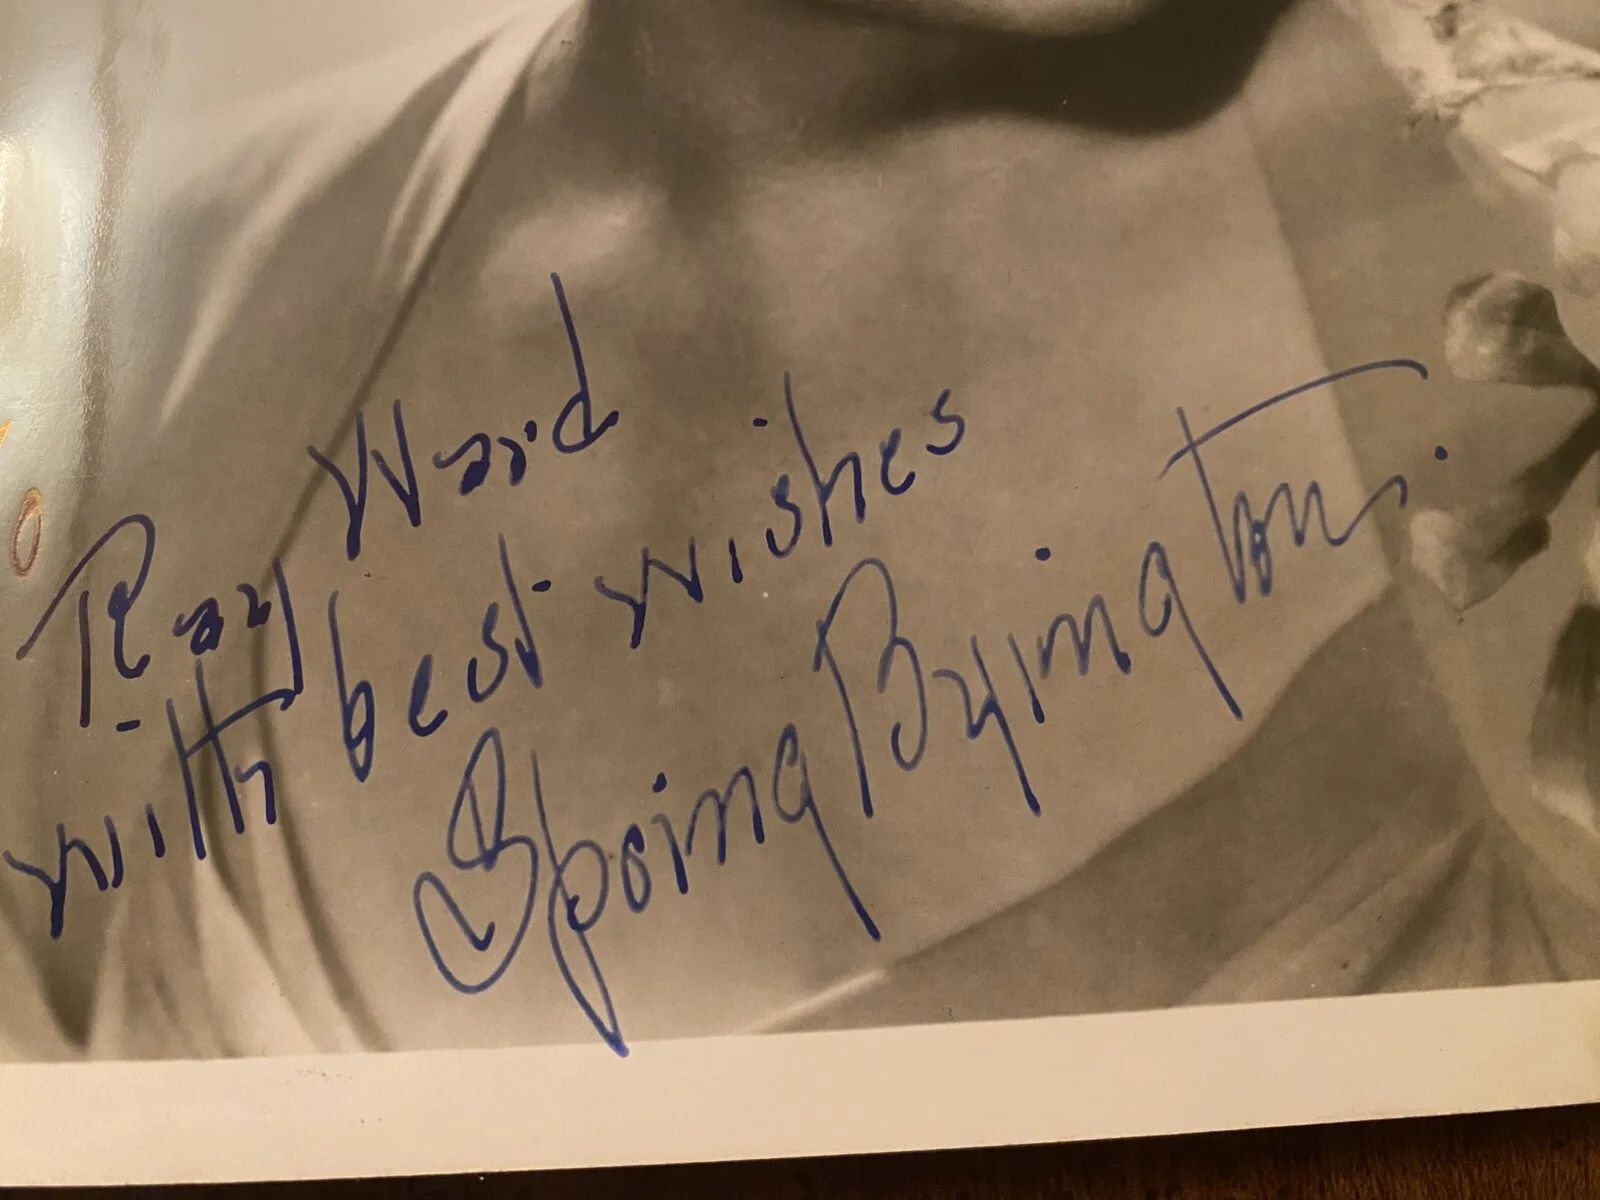 Ray Ward -
with best wishes
Spring Byington.